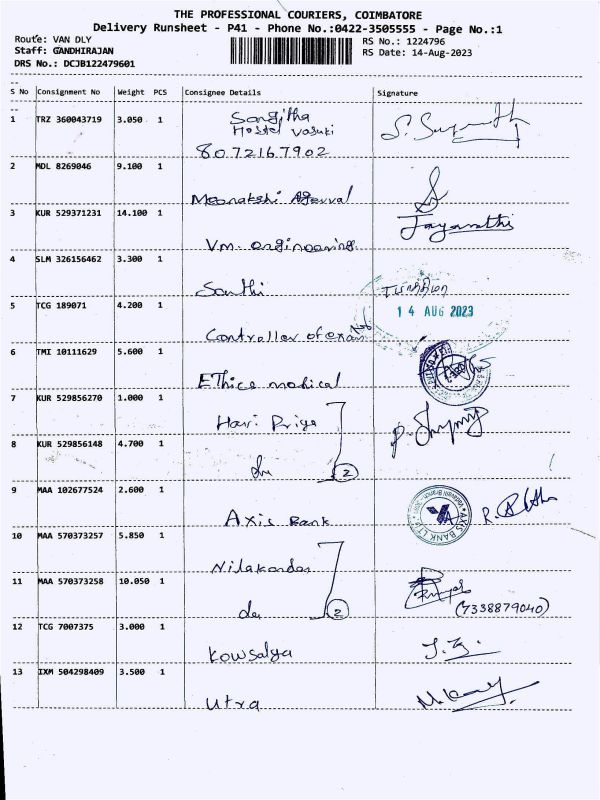 THE PROFESSIONAL COURIERS, COIMBATORE
Delivery Runsheet - P41 - Phone No.:0422-3505555 - Page No.:1
Route: VAN DLY
RS No.: 1224796
Staff: GANDHIRAJAN
RS Date: 14-Aug-2023
DRS No.: DCJB122479601
S No Consignment No Weight PCS Consignee Details Signature
1 TRZ 360043719 3.050 1 Sangitha
Hostel Vasuki
8072167902
2 MDL 8269046 9.100 1
Meenakshi Agerval
3 KUR 529371231 14.100 1 Jayanthi
Vm. engineering
4 SLM 326156462 3.300 1
Santhi
14 AUG 2023
5 TCG 189071 4.200 1
Controller of exam
6 TMI 10111629 5.600 1
EThics medical
7 KUR 529856270 1.000 1
Hari Priya
8 KUR 529856148 4.700 1
do 2
9 MAA 102677524 2.600 1
Axis Bank
AXIS BANK LTD
10 MAA 570373257 5.850 1
Nilakandan
11 MAA 570373258 10.050 1
do 2 (7338879040)
12 TCG 7007375 3.000 1
Kowsalya
13 IXM 504298409 3.500 1
Utra